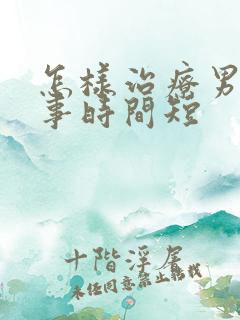 怎樣治療男
事時間短
十階淫尾
未任同意禁止轉載